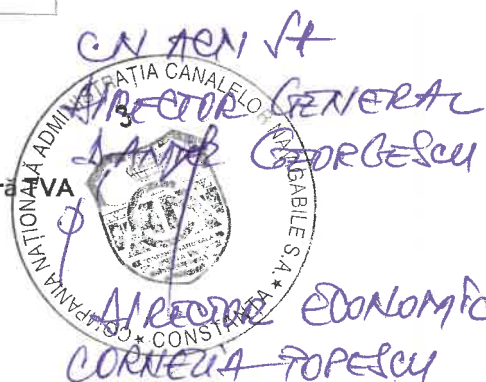 CN ACN SA
DIRECTOR GENERAL
GEORGESCU
ă TVA
COMPANIA NAȚIONALĂ ADMINISTRAȚIA CANALELOR NAVIGABILE S.A. * CONSTANȚA *
DIRECTOR ECONOMIC
CORNELIA POPESCU